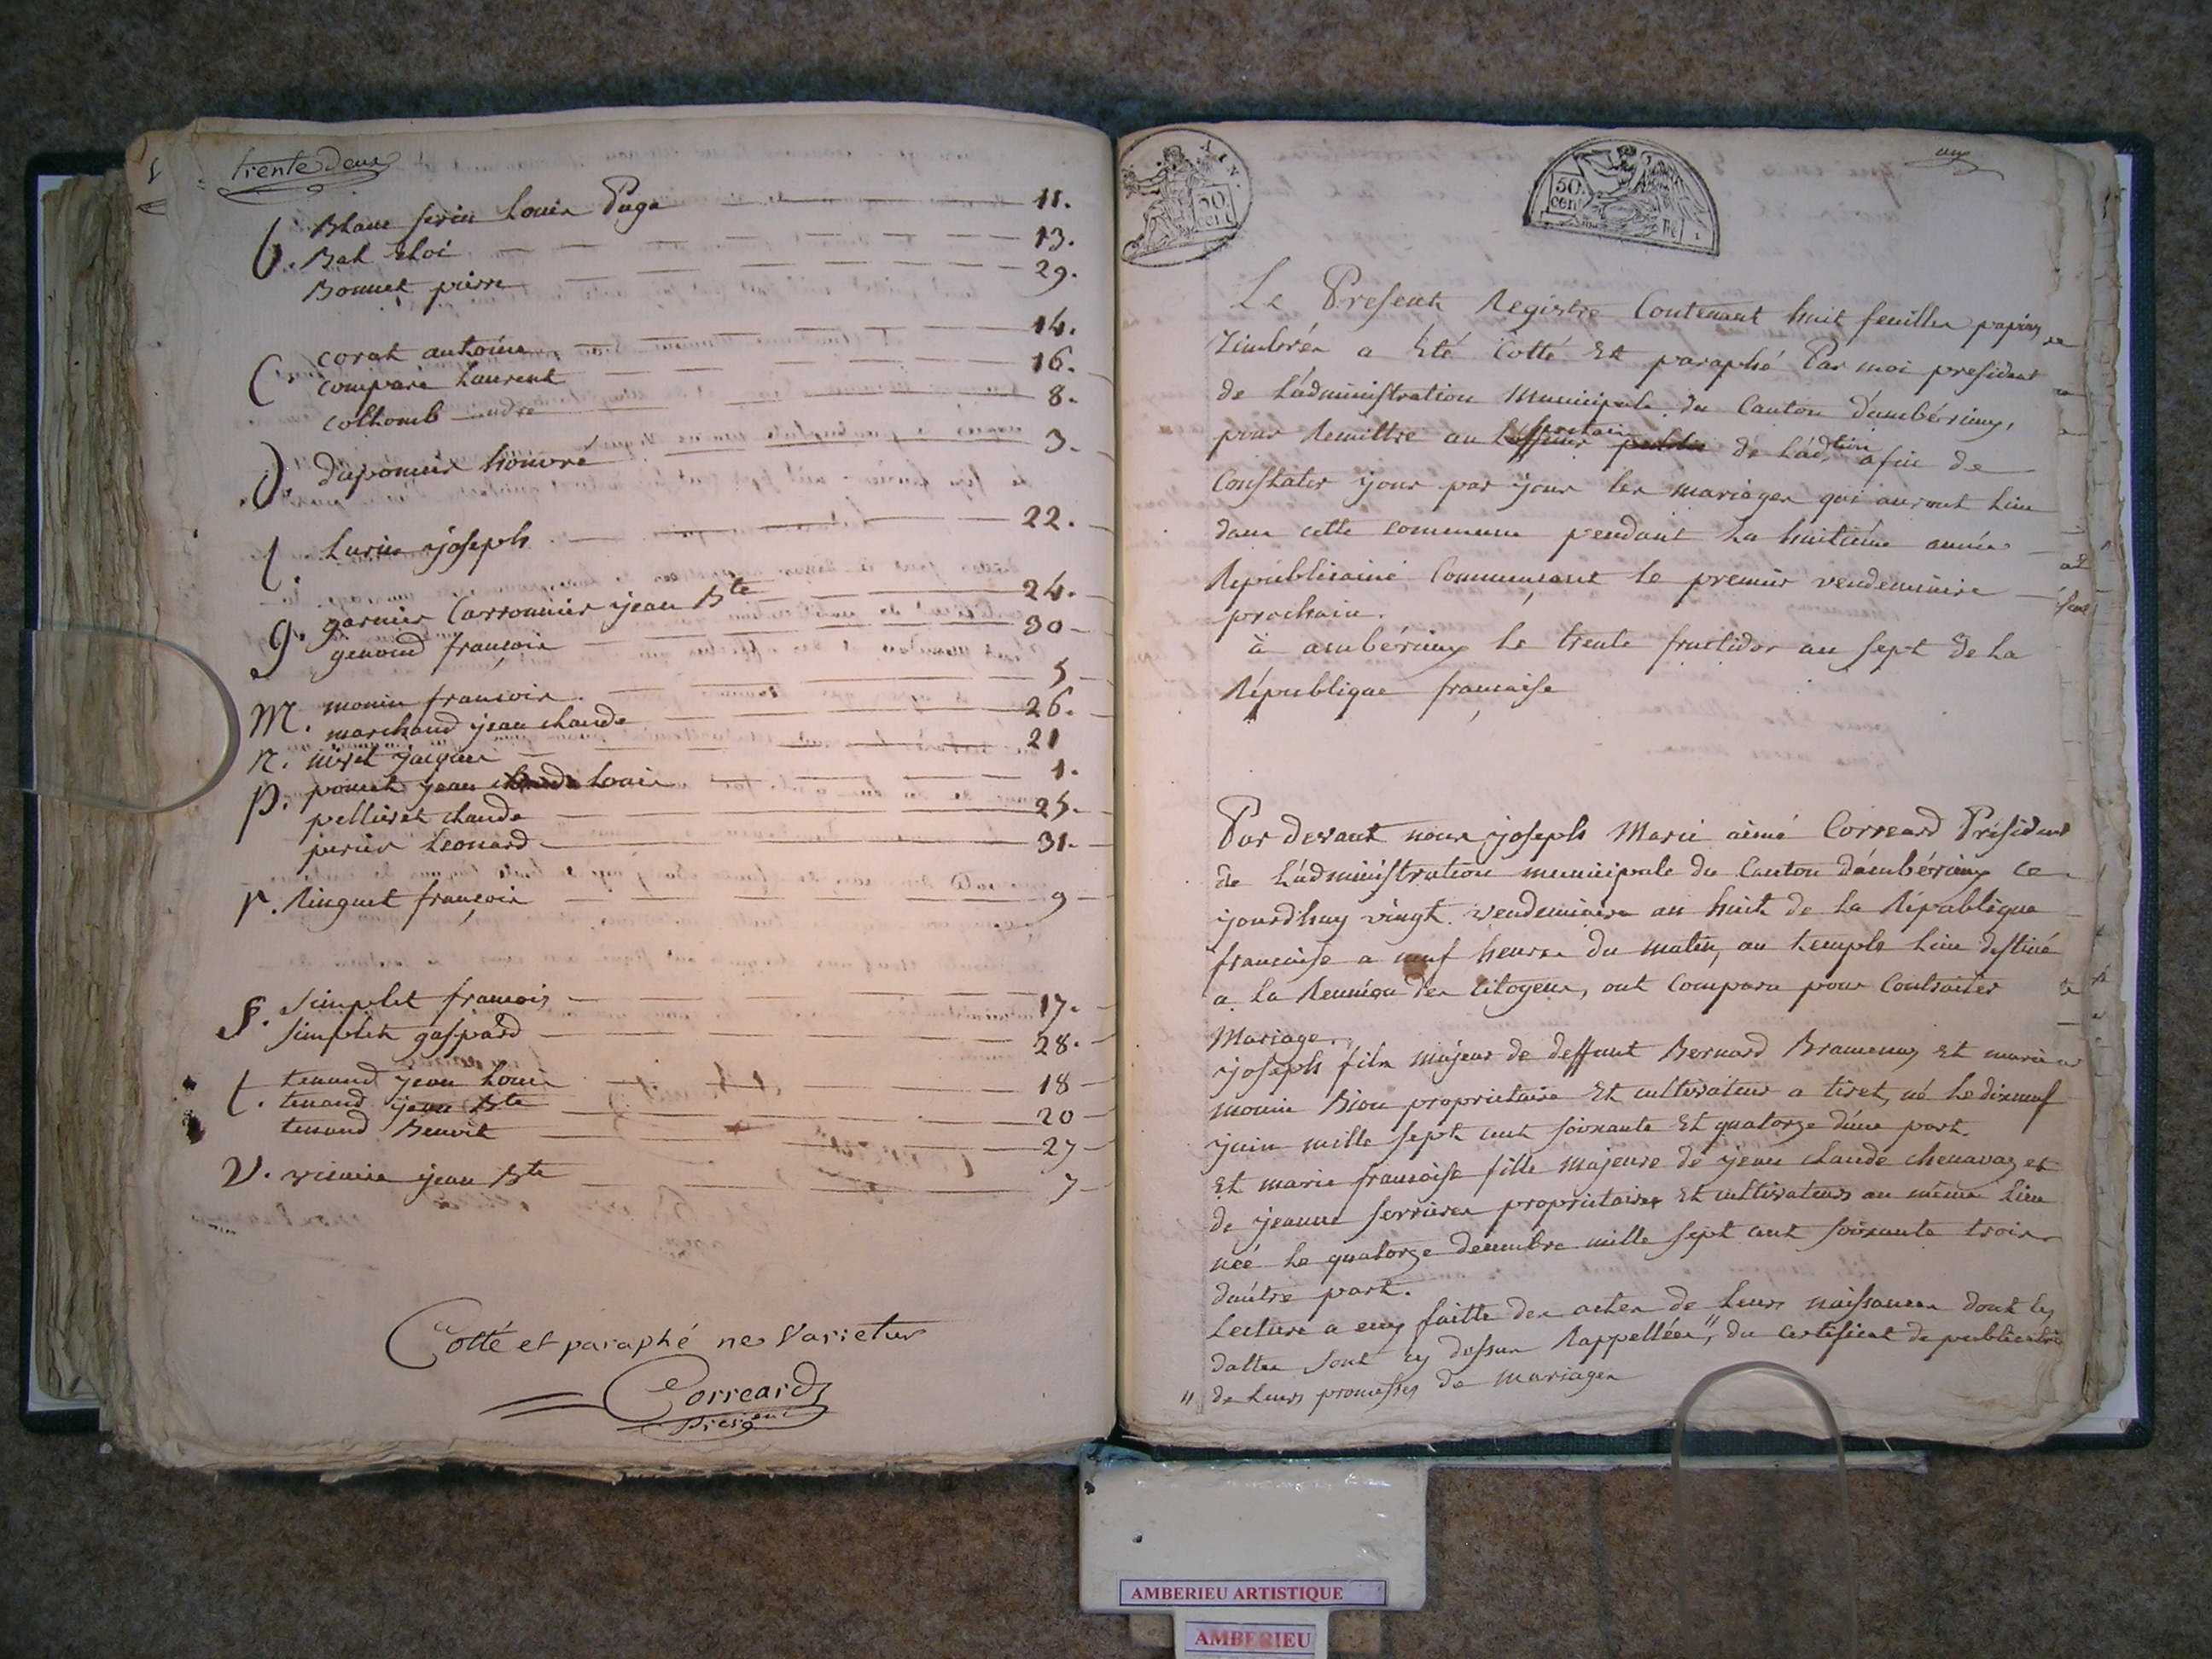 trente deux
B. Blanc ferin Louis Page 11.
Bal Eloi 13.
Bonnet pierre 29.
C. corat antoine 14.
compare Laurent 16.
colhomb andre 8.
D. duponnier honoré 3.
l. Lurin joseph 22.
g. garnier Carronnier jean Bte 24.
genoud françois 30
M. monin francois 5
marchand jean claude 26.
n. nivet Jacques 21
p. ponct jean Louis 1.
pelliset claude 25.
perier Leonard 31.
r. Ringuet françois 9
S. Simplet francois 17.
Simplet gaspard 28.
t. tenand jean Louis 18
tenand jean Bte 20
tenand Benoit 27
V. jean Bte 7
Cotté et paraphé ne Varietur
Correard
Président
AIN.
50 cent
50. cent
un
Le Present Registre Contenant huit feuilles papier
timbrés a Eté Cotté Et paraphé Par moi president
de L'administration Municipale du Canton d'ambérieux,
pour Remettre au secretaire de L'adtion afin de
Constater jour par jour les mariages qui auront lieu
dans cette commune pendant la huitiéme année
Républicaine Commençant le premier vendemiaire
prochain.
à ambérieux le trente fructidor an sept de la
République française
Par devant nous joseph Marie aimé Correard Président
de L'administration municipale du Canton d'ambérieux ce
jourdhuy vingt vendemiaire an huit de la République
francaise a neuf heures du matin, au temple lieu destiné
a la Reunion des Citoyens, ont Comparu pour Contracter
Mariage.
joseph fils majeur de deffunt Bernard Bramenas Et marie
monin Biou proprietaire Et cultivateur a tiret, né le dixneuf
juin mille sept cent soixante Et quatorze d'une part.
Et marie francoise fille majeure de jean claude chenavaz et
de jeanne serrieres proprietaires Et cultivateurs au même lieu
née le quatorze decembre mille sept cent soixante trois
d'autre part.
Lecture a eux faitte des actes de leurs naissances dont les
dattes sont cy dessus Rappellées", du certificat de publication
" de leurs promesses de mariages
AMBERIEU ARTISTIQUE
AMBERIEU